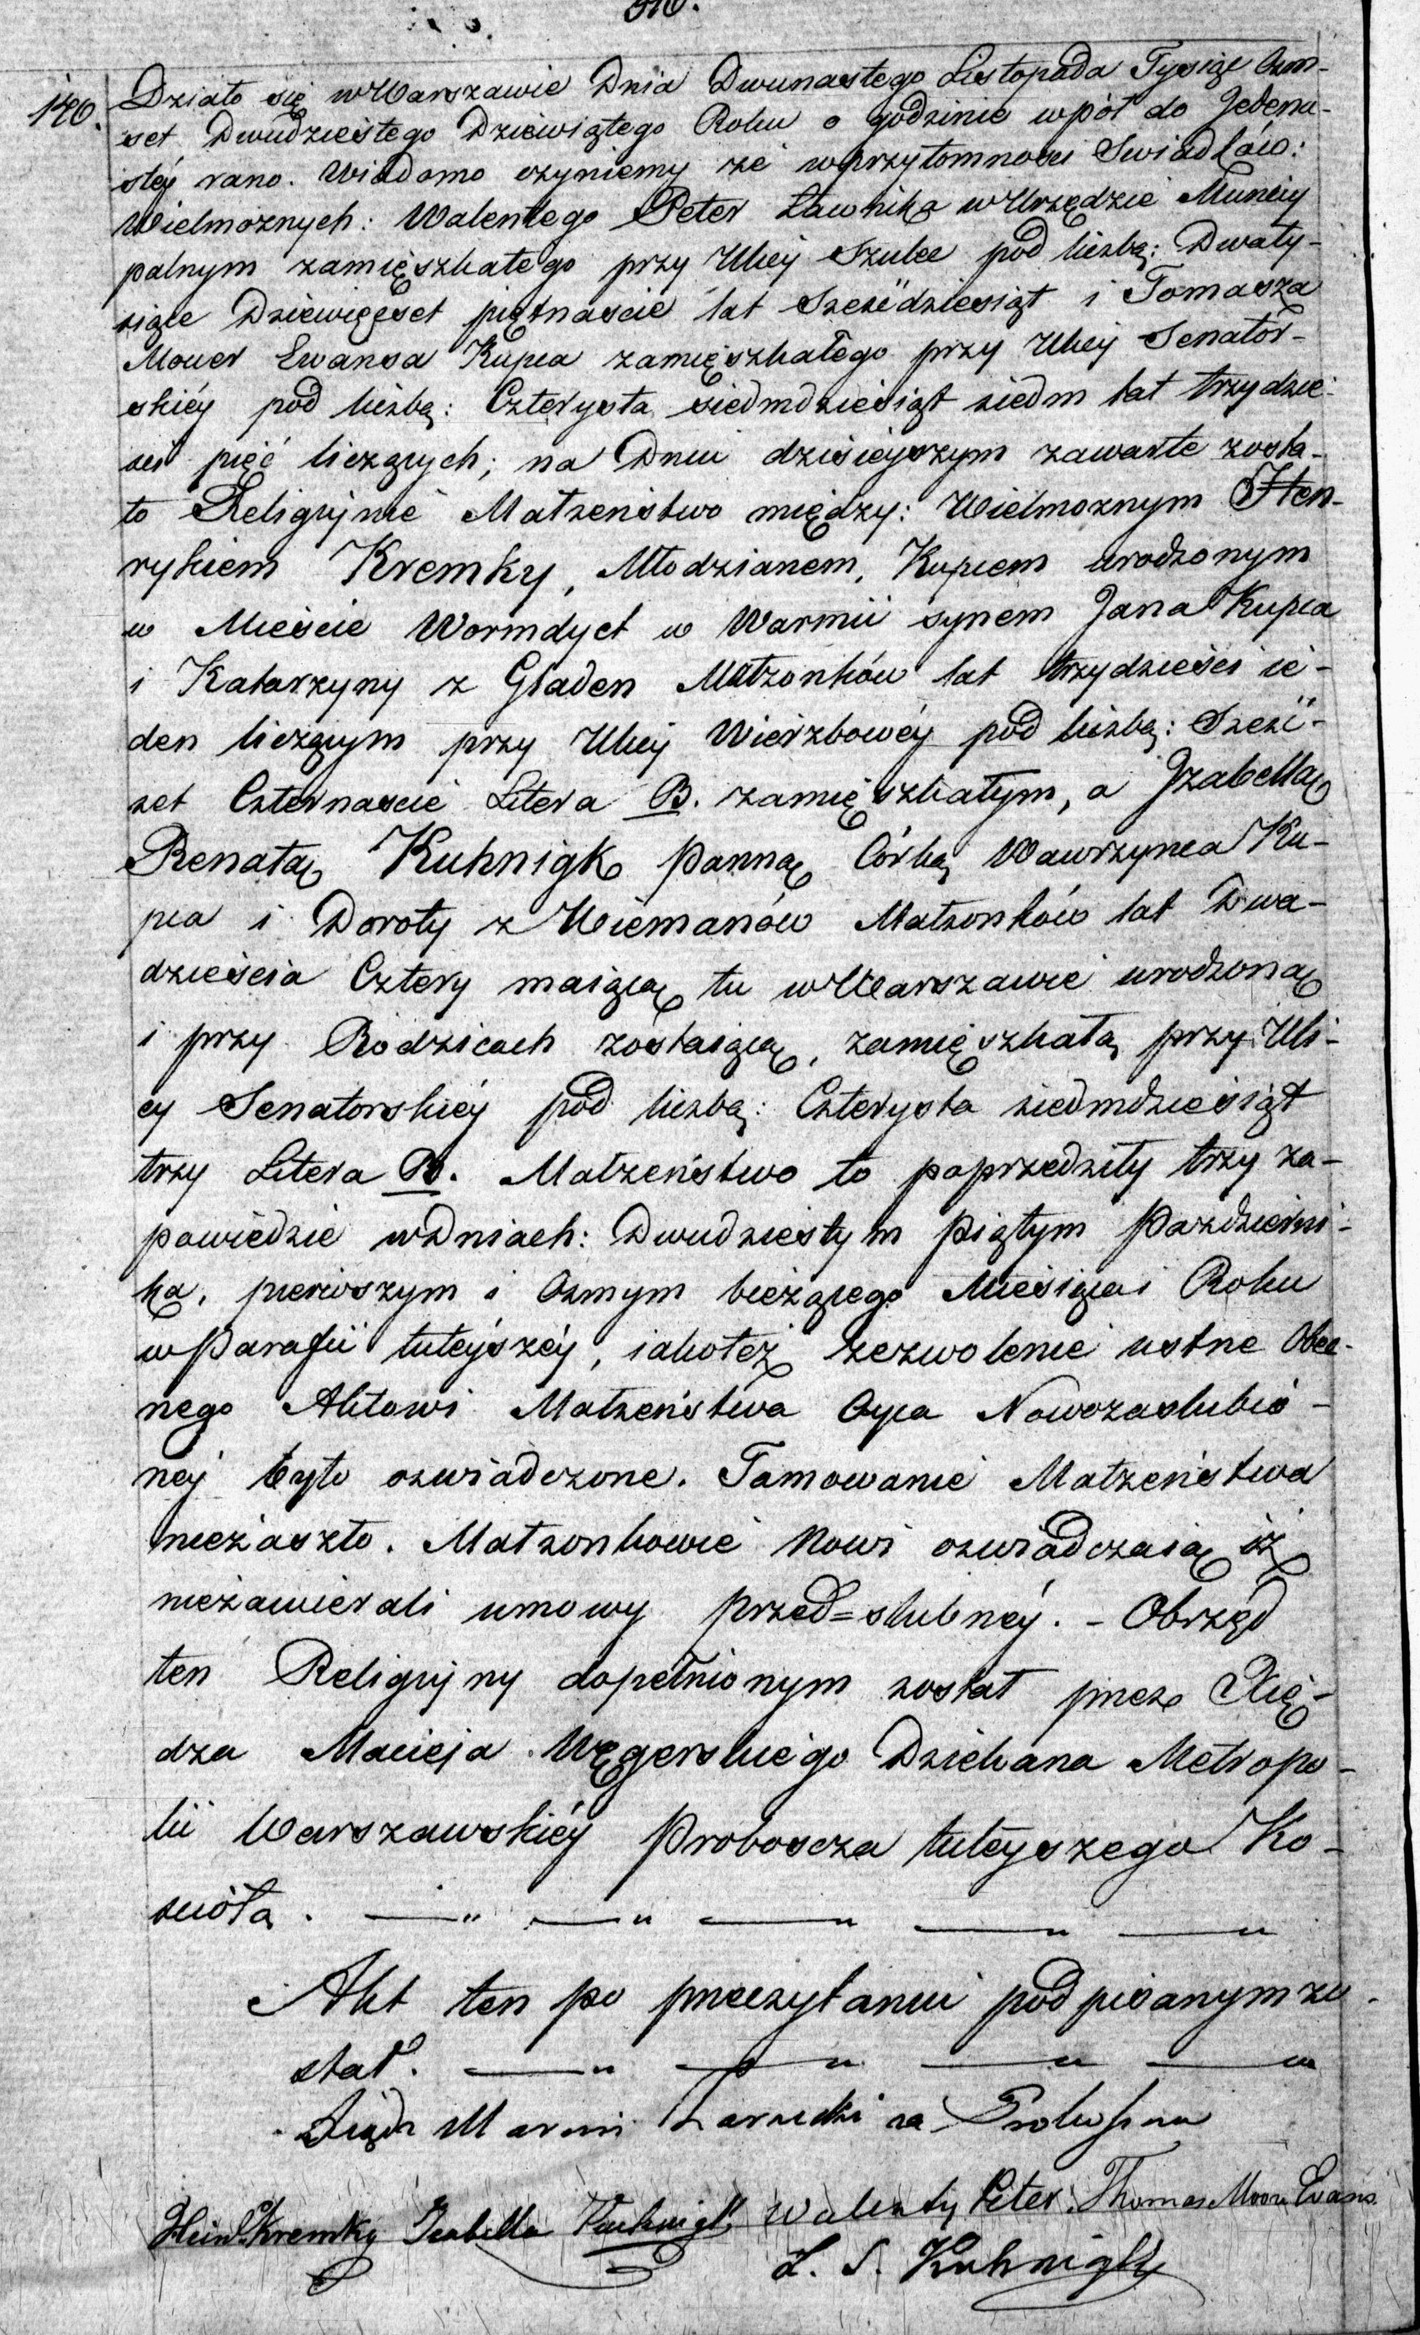 140.
Działo się w Warszawie Dnia Dwunastego Listopada Tysiąc Ośm-
set Dwudziestego Dziewiątego Roku o godzinie wpół do Jedena-
stéj rano. Wiadomo czyniemy że w przytomności Swiadków:
Wielmożnych: Walentego Peter Ławnika w Urzędzie Municy
palnym zamięszkałego przy Ulicy Szulce pod liczbą: Dwaty-
siące Dziewięćset piętnascie lat Sześćdziesiąt i Tomasza
Mouer Ewansa Kupca zamięszkałego przy Ulicy Senator-
skiéy pod liczbą: Czterysta siedmdziesiąt siedm lat trzydzie-
ści pięć liczących; na Dniu dzisieyszym zawarte zosta-
ło Religijnie Małżeństwo między: Wielmożnym Hen-
rykiem Kremky, Młodzianem, Kupcem urodzonym
w Mieście Wormdyct w Warmii synem Jana Kupca
i Katarzyny z Gladen Małżonków lat trzydzieści ie-
den liczącym przy Ulicy Wierzbowéy pod liczbą: Sześć-
set Czternascie Litera B. zamięszkałym, a Jzabellą
Renatą Kuhnigk Panną Córką Wawrzynca Ku-
pca i Doroty z Wiemanów Małżonków lat Dwa-
dzieścia Cztery maiącą tu w Warszawie urodzoną
i przy Rodzicach zostaiącą, zamięszkałą przy Uli-
cy Senatorskiéy pod liczbą: Czterysta siedmdziesiąt
trzy Litera B. Małżeństwo to poprzedziły trzy za-
powiedzie w Dniach: Dwudziestym Piątym Pazdzierni-
ka, pierwszym i ósmym bieżącego Miesiąca i Roku
w Parafii tuteyszéy, iakoteż zezwolenie ustne Obec-
nego Aktowi Małżeństwa Oyca Nowozaslubio-
néj było oswiadczone. Tamowanie Małżeństwa
niezaszło. Małżonkowie Nowi oswiadczaią iż
niezawierali umowy przed=slubnéy. - Obrzęd
ten Religijny dopełnionym został przez Xię-
dza Macieja Węgerskiego Dziekana Metropo-
lii Warszawskiéy Proboscza tuteyszego Ko-
scioła.
Akt ten po przeczytaniu podpisanym zo-
stał.
Xiądz Marcin za Proboszcza
Heinr Kremky Isabella Kuhnigk Walenty Peter. Thomas Moore Evans
L. S. Kuhnigk